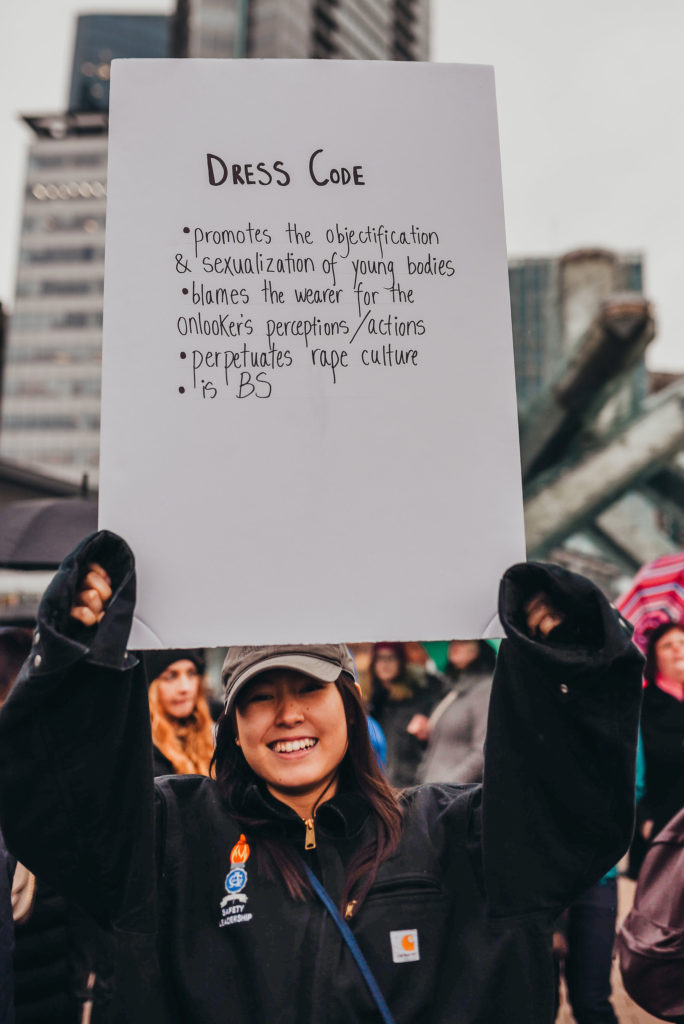 DRESS CODE
• promotes the objectification
& sexualization of young bodies
• blames the wearer for the
onlooker's perceptions/actions
• perpetuates rape culture
• is BS
SAFETY
LEADERSHIP